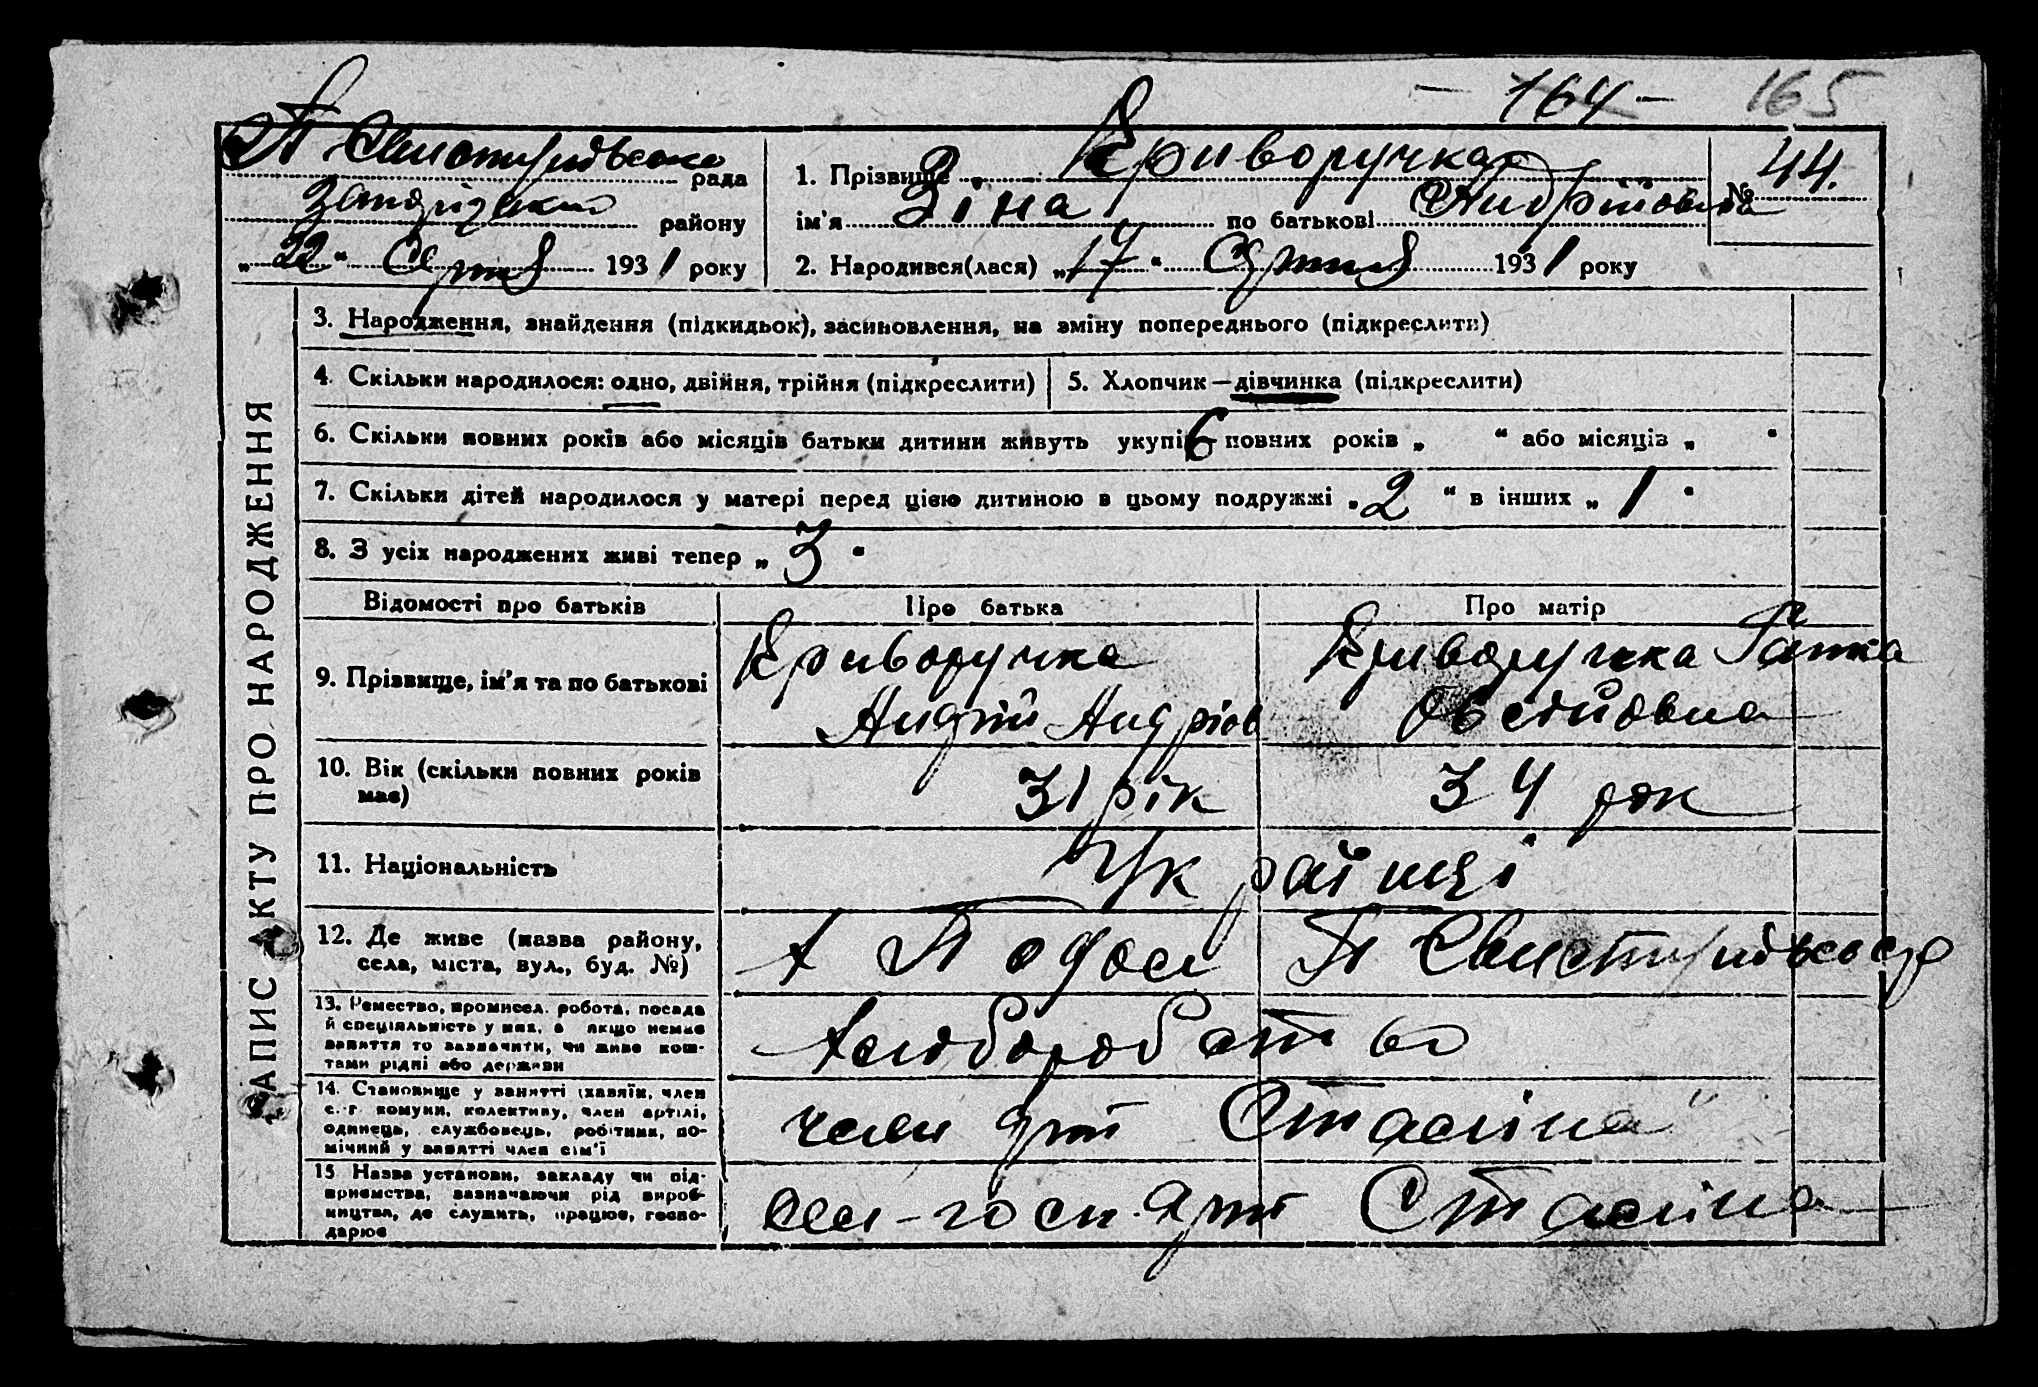 - 164 - 165
П Свистунівська рада
району
„22“ Серпня 1931 року
1. Прізвище Криворучка
ім'я Зіна по батькові Андріївна
№ 44.
2. Народився(лася) „17“ Серпня 1931 року
ЗАПИС АКТУ ПРО НАРОДЖЕННЯ
3. Народження, знайдення (підкидьок), засиновлення, на зміну попереднього (підкреслити)
4. Скільки народилося: одно, двійня, трійня (підкреслити)
5. Хлопчик—дівчинка (підкреслити)
6. Скільки повних років або місяців батьки дитини живуть укупі 6 повних років „ “ або місяців „ “
7. Скільки дітей народилося у матері перед цією дитиною в цьому подружжі „2“ в інших „1“
8. З усіх народжених живі тепер „3“
Відомості про батьків Про батька Про матір
9. Прізвище, ім'я та по батькові
Криворучка
Андрій Андріїов
Криворучка Ганна
Овсіївна
10. Вік (скільки повних років
має)
31 рік
34 рок
11. Національність
Українці
12. Де живе (назва району,
села, міста, вул., буд. №)
х П Свистунівського
13. Ремество, промисел, робота, посада
й спеціяльність у них, а якщо немає
заняття то зазначити, чи живе кош-
тами рідні або держави
Хліборобство
14. Становище у занятті (хазяїн, член
с.-г. комуни, колективу, член артілі,
одинець, службовець, робітник, по-
мічний у занятті член сім'ї
член арт Сталіна
15. Назва установи, закладу чи під-
приємства, зазначаючи рід вироб-
ництва, де служить, працює, госпо-
дарює
сел-госп. арт Сталіна